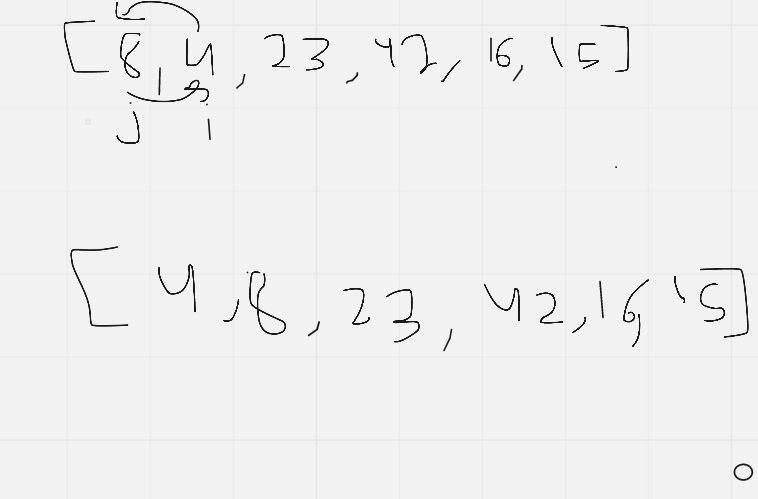 [8, 4, 23, 42, 16, 15]
j i
[4, 8, 23, 42, 16, 15]